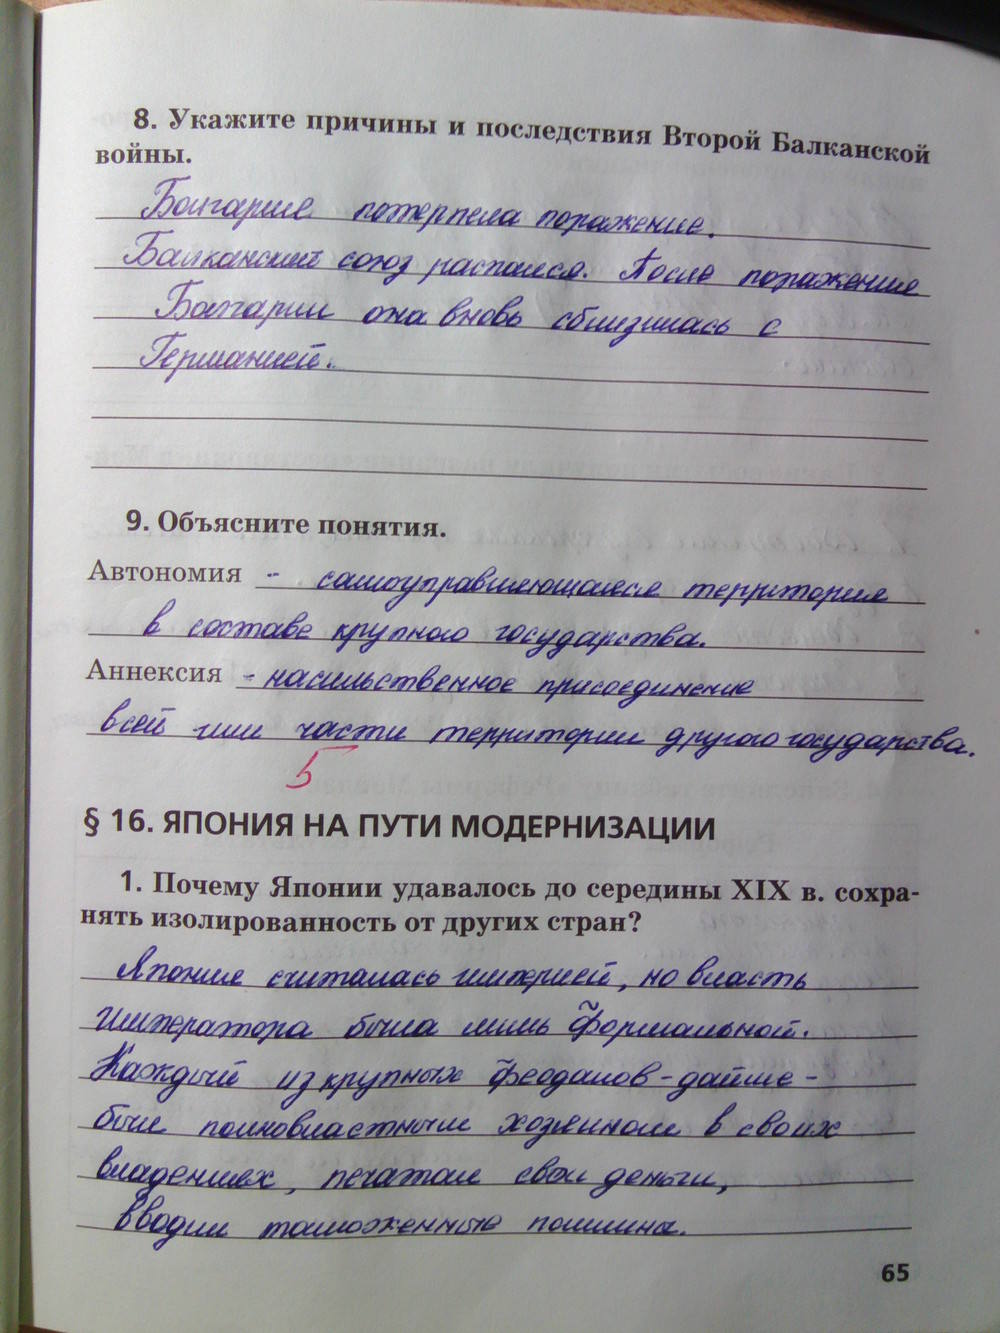 8. Укажите причины и последствия Второй Балканской
войны.
Болгария потерпела поражение.
Балканский союз распался. После поражение
Болгарии она вновь сблизилась с
Германией.
9. Объясните понятия.
Автономия - самоуправляющаяся территория
в составе крупного государства.
Аннексия - насильственное присоединение
всей или части территории другого государства.
5
§ 16. ЯПОНИЯ НА ПУТИ МОДЕРНИЗАЦИИ
1. Почему Японии удавалось до середины XIX в. сохра-
нять изолированность от других стран?
Япония считалась империей, но власть
императора была лишь формальной.
Каждый из крупных феодалов - дайме -
был полновластным хозяином в своих
владениях, печатал свои деньги,
вводил таможенные пошлина.
65